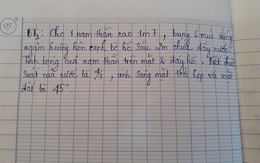 B1: Cho 1 nam thần cao 1m7, bụng 6 múi đứng
ngắm hoàng hôn cạnh bờ hồ sâu 4m chứa đầy nước.
Tính bóng của nam thần trên mặt & đáy hồ. Biết chiết
suất của nước là 4/3, ánh sáng mặt trời hợp với mặt
đất là 45°